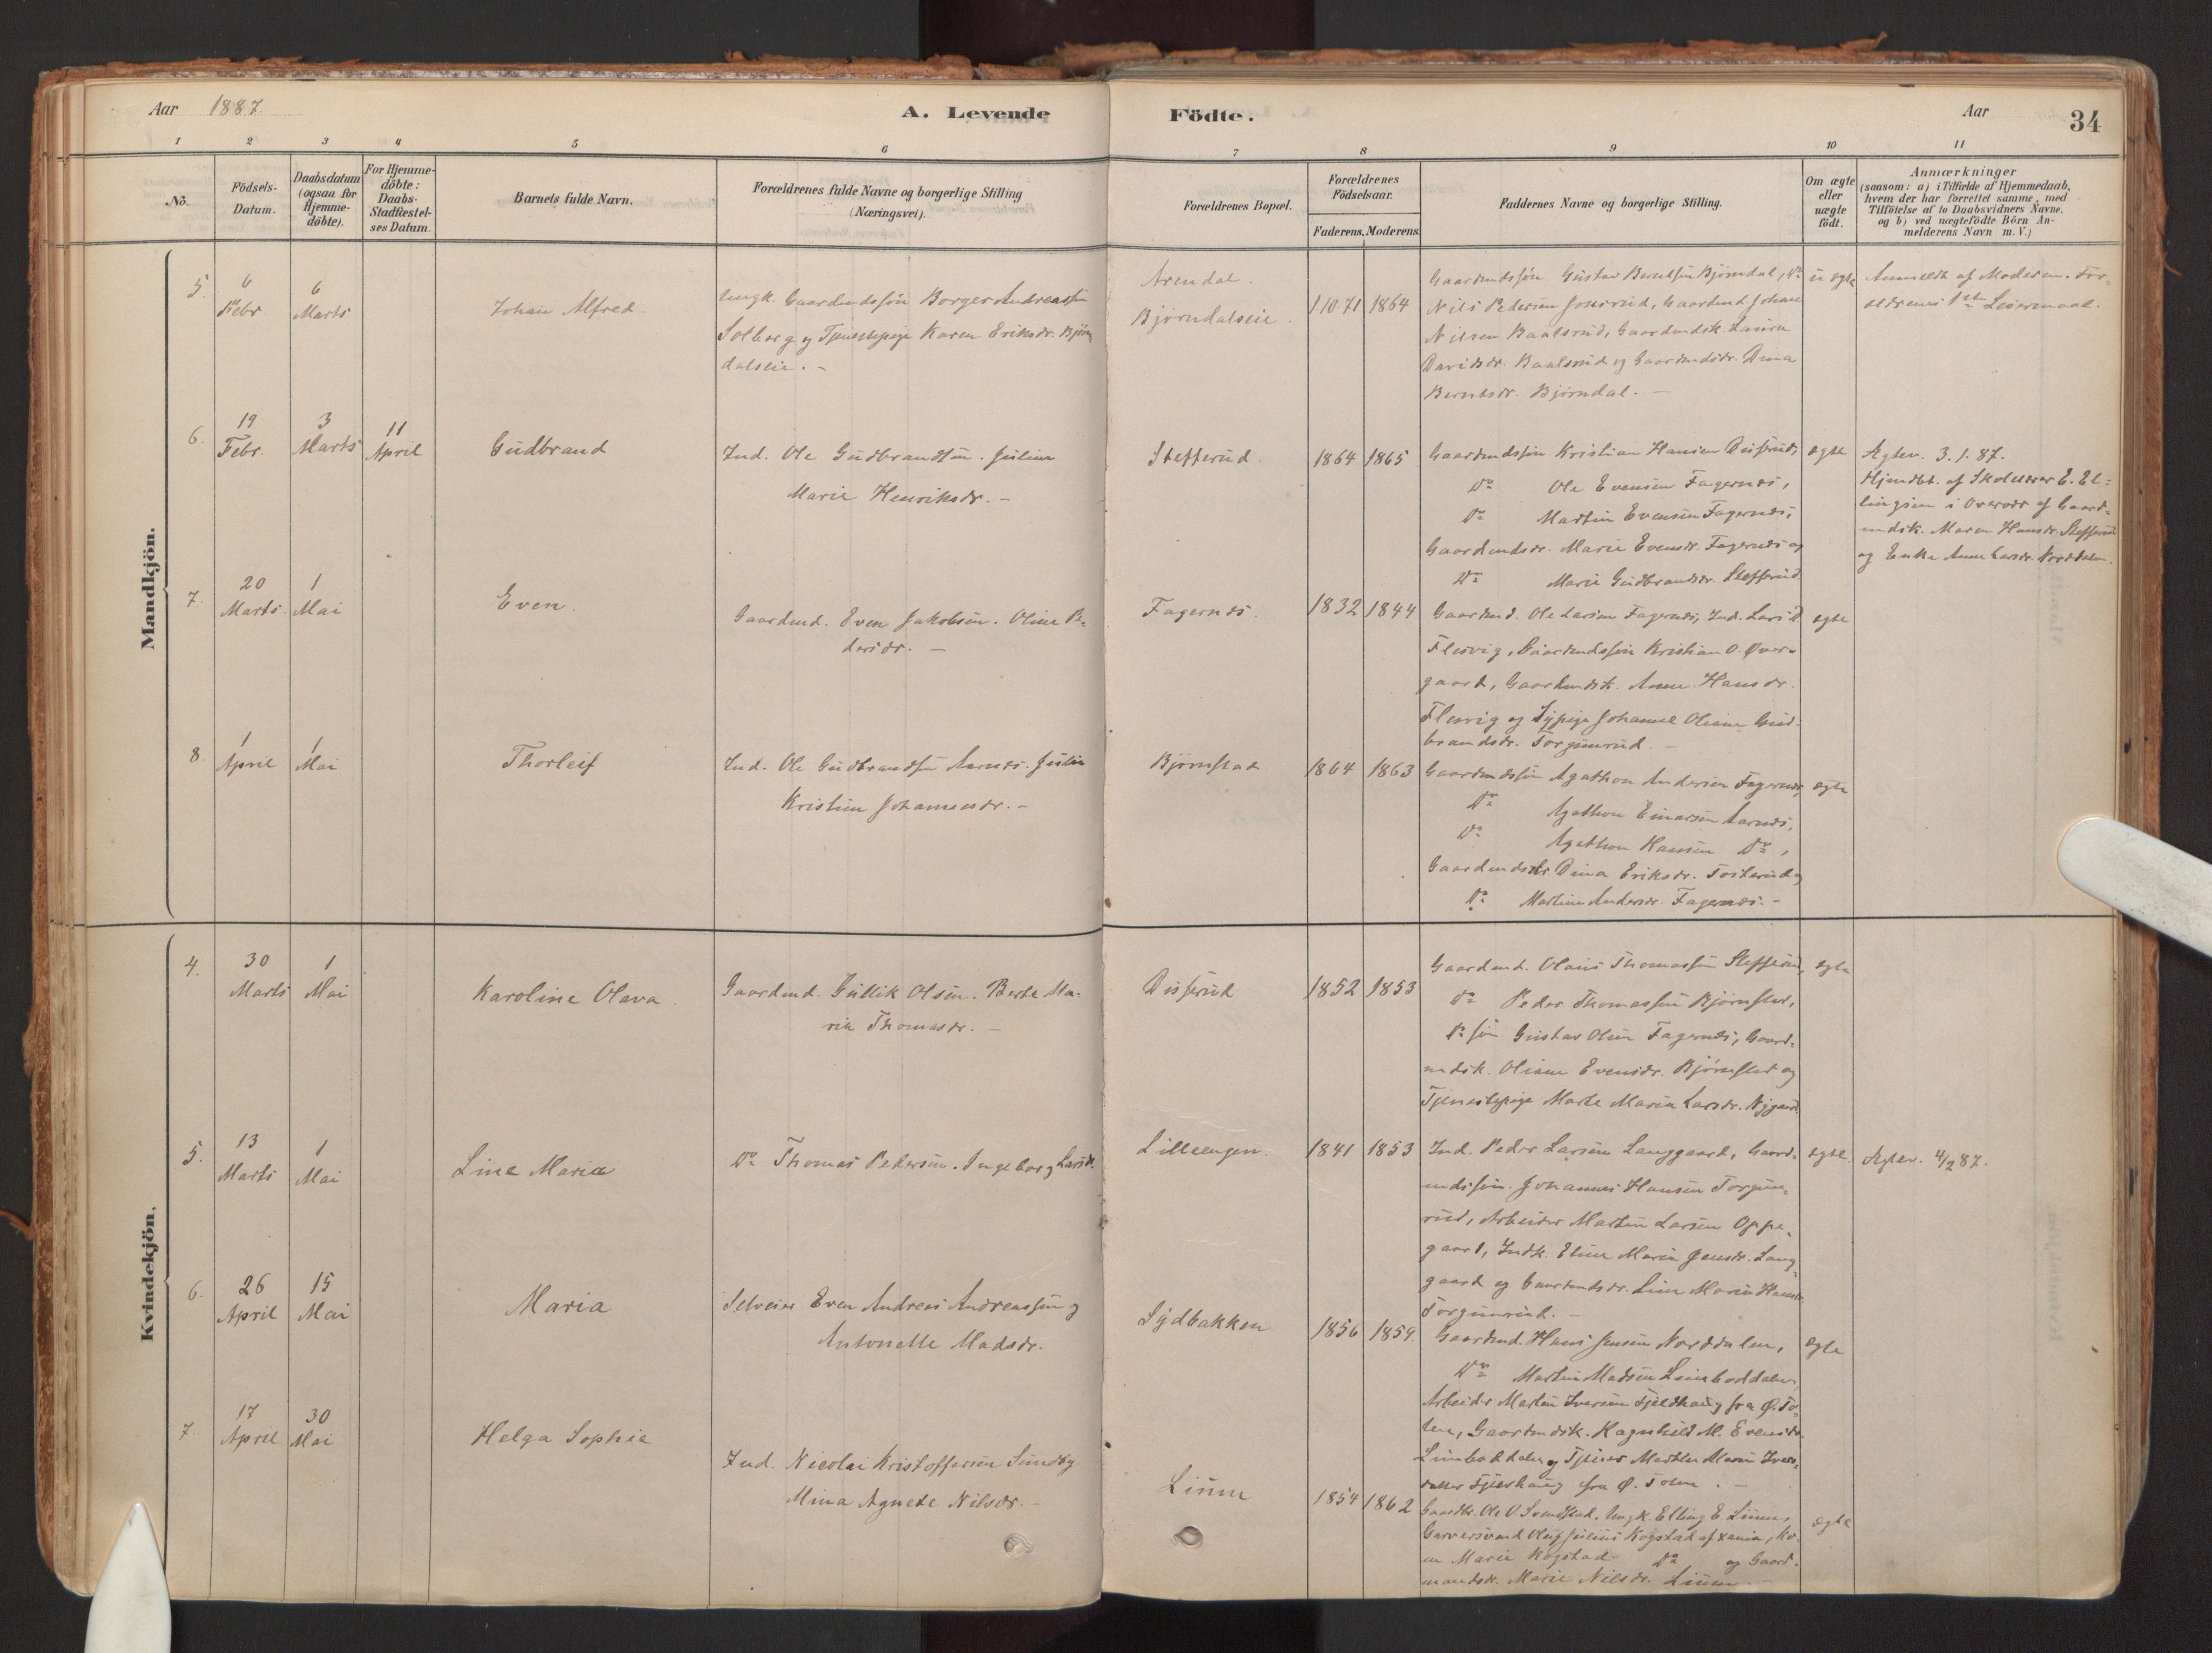 Aar 1887.
A. Levende
Födte.
Aar
34
1 2 3 4 5 6 7 8 9 10 11
No.
Födsels-
Datum.
Daabsdatum
(ogsaa for
Hjemme-
döbte).
For Hjemme-
döbte:
Daabs-
Stadfæstel-
ses Datum.
Barnets fulde Navn.
Forældrenes fulde Navne og borgerlige Stilling
(Næringsvei).
Forældrenes Bopæl.
Forældrenes
Födselsaar.
Faderens. Moderens.
Faddernes Navne og borgerlige Stilling.
Om ægte
eller
uægte
födt.
Anmærkninger
(saasom: a) i Tilfælde af Hjemmedaab,
hvem der har forrettet samme, med
Tilföielse af to Daabsvidners Navne.
og b) ved uægtefödte Börn An-
melderens Navn m. V.)
Mandkjön.
5.
6
Febr
6
Marts
Johan Alfred.
Ungk. Gaardmdssøn Borger Andreassen
Solberg og Tjenestepige Karen Eriksdr. Bjørn
dalseie. -
Arendal.
Bjørndalseie.
1864
Gaardmdssøn Gustav Berntsen Bjørndal, Do
Nils Pedersen, Gaardmd Johan
Nilsen Baalsrud, Gaardmdsk. Laura
Davidsdr. Baalsrud og Gaardmdsdr. Dina
Berntsdr. Bjørndal. -
uægte
Anmeldt af Moderen. For-
ældrenes 1ste Leiermaal.
6.
19
Febr.
3
Marts
11
April
Gudbrand
Ind. Ole Gudbrandsen. Juline
Marie Henriksdr. -
Stefferud.
1864 1865
Gaardmdssøn Kristian Hansen Disserud,
Do Ole Evensen Fagernæs,
Do Martin Evensen Fagernæs,
Gaardmdsdr. Marie Evensdr. Fagernæs og
Do Marie Gudbrandsdr. Stefferud.
ægte
Ægtev. 3.1.87.
Hjemdbt. af Skolelærer E. El-
lingsen i Overvær af Gaard-
mdsk. Maren Hansdr. Stefferud
og Enke Anne Larsdr. Norddalen.
7.
20
Marts
1
Mai
Even.
Gaardmd. Even Jakobsen. Oline Pe-
dersdr. -
Fagernæs.
1832 1844
Gaardmd. Ole Larsen Fagernæs, Ind. Lars
Flesvig, Gaardmdssøn Kristian O. Over-
gaard, Gaardmdsk. Anne Hansdr.
Flesvig og Sypige Johanne Oliane Gud-
brandsdr. Torgunrud. -
ægte
8
1
April
1
Mai
Thorleif
Ind. Ole Gudbrandsen Aarnæs. Julie
Kristine Johannesdr. -
Bjørnstad
1864 1863
Gaardmdssøn Agathon Andersen Fagernæs,
Do Agathon Einarsen Aarnæs,
Do Agathon Hansen Do,
Gaardmdsdr Dina Eriksdr. Fosterud og
Do Martine Andersdr. Fagernæs. -
ægte
Kvindekjön.
4.
30
Marts
1
Mai
Karoline Olava.
Gaardmd. Gullik Olsen. Berte Ma-
rie Thomasdr. -
Disserud
1852 1853
Gaardmd. Olaus Thomassen Stefferud,
Do Peder Thomassen Bjørnstad,
Do søn Gustav Olsen Fagernæs, Gaard-
mdsk. Oliane Evensdr. Bjørnstad og
Tjenestepige Marte Maria Larsdr. Nygaard
ægte
5.
13
Marts
1
Mai
Line Marie
Do Thomas Pedersen. Ingeborg Larsdr.
Lilleengen.
1841 1853
Ind. Peder Larsen Langgaard, Gaard-
mdssøn. Johannes Hansen Torgun-
rud, Arbeider Martin Larsen Oppe-
gaard, Indk. Eline Marie Jensdr. Lang-
gaard og Gaardmdsdr. Line Marie Hansdr.
Torgunrud. -
ægte.
Ægtev. 4/2 87.
6.
26
April
15
Mai
Maria
Selveier Even Andreas Andreassen og
Antonette Madsdr.
Sydbakken
1856 1859.
Gaardmd. Hans Jensen Norddalen,
Do Martin Madsen Limboddalen,
Arbeider Martin Iversen Fjeldhaug fra Ø. To-
ten, Gaardmdsk. Ragnhild M. Evensdr.
Limboddalen og Marthe Marie Ivers-
datter Fjeldhaug fra Ø. Toten. -
ægte
7.
17
April
30
Mai
Helga Sophie
Ind. Nicolai Kristoffersen Sundby
Mina Agnete Nilsdr. -
Linne
1854 1862
Gaardbr. Ole O. Svenstad. Ungk. Elling E. Linne,
Garversvend Oluf Julius Kogstad af Xania, Ko-
ne Marie Kogstad Do og Gaard-
mandsdr. Marie Nilsdr. Linne. -
ægte